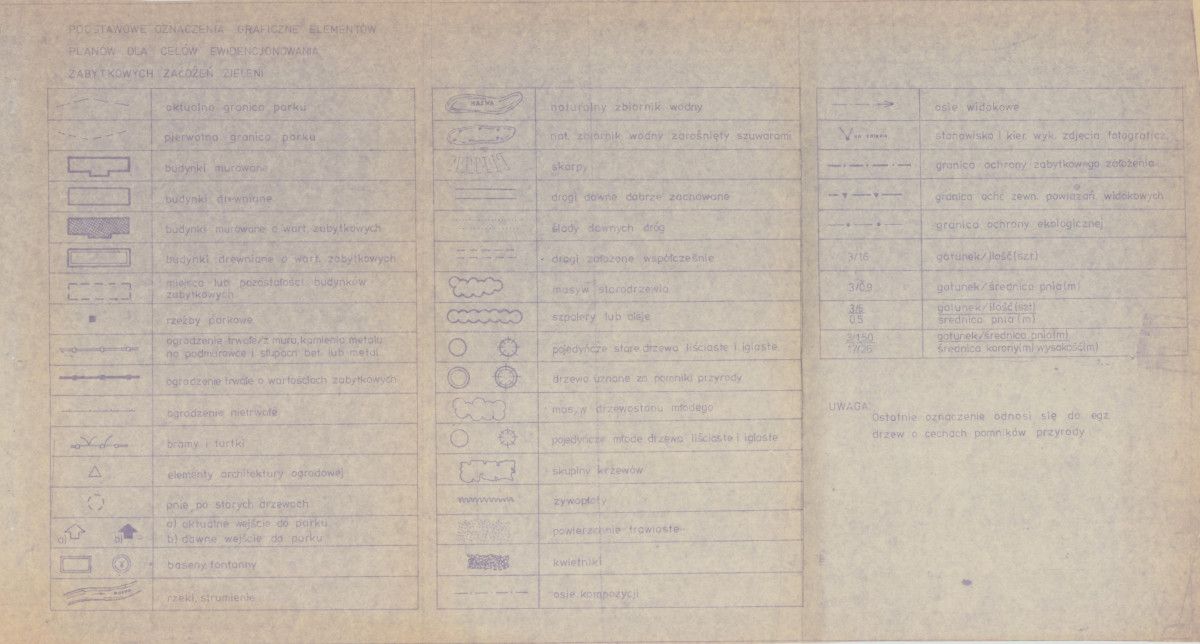 PODSTAWOWE OZNACZENIA GRAFICZNE ELEMENTÓW
PLANÓW DLA CELÓW EWIDENCJONOWANIA
ZABYTKOWYCH ZAŁOŻEŃ ZIELENI
aktualna granica parku
pierwotna granica parku
budynki murowane
budynki drewniane
budynki murowane o wart. zabytkowych
budynki drewniane o wart. zabytkowych
miejsca lub pozostałości budynków
zabytkowych
rzeźby parkowe
ogrodzenie trwałe/z muru, kamienia metalu
na podmurówce i słupach bet. lub metal.
ogrodzenie trwałe o wartościach zabytkowych
ogrodzenie nietrwałe
bramy i furtki
elementy architektury ogrodowej
pnie po starych drzewach
a) b) a) aktualne wejście do parku
b) dawne wejście do parku
baseny, fontanny
rzeki, strumienie
NAZWA naturalny zbiornik wodny
nat. zbiornik wodny zarośnięty szuwarami
skarpy
drogi dawne dobrze zachowane
ślady dawnych dróg
drogi założone współcześnie
masyw starodrzewia
szpalery lub aleje
pojedyńcze stare drzewa liściaste i iglaste
drzewa uznane za pomniki przyrody
masyw drzewostanu młodego
pojedyńcze młode drzewa liściaste i iglaste
skupiny krzewów
żywopłoty
powierzchnie trawiaste
kwietniki
osie kompozycji
osie widokowe
stanowisko i kier. wyk. zdjęcia fotograficz.
granica ochrony zabytkowego założenia
granica ochr. zewn. powiązań widokowych
granica ochrony ekologicznej
3/16 gatunek/ilość(szt)
3/0,9 gatunek/średnica pnia(m)
3/6 gatunek/ilość(szt)
0,5 średnica pnia(m)
3/1,50 gatunek/średnica pnia(m)
17/26 średnica korony(m) wysokość(m)
UWAGA:
Ostatnie oznaczenie odnosi się do egz.
drzew o cechach pomników przyrody